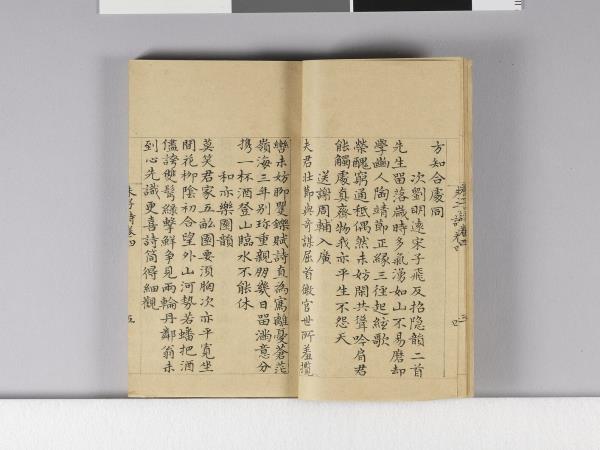 方知合處同
次劉明遠宋子飛反招隐韻二首
先生留落歲時多氣湧如山不易磨却
學幽人陶靖節正緣三徑起絃歌
榮醜窮通秪偶然未妨閑共聳吟肩君
能觸處真齊物我亦平生不怨天
送謝周輔入廣
夫君壯節與奇謀屈首微官世所羞攬
轡未妨聊矍鑠賦詩直為寫離憂蒼茫
嶺海三年別珍重親朋幾日留滿意分
携一杯酒登山臨水不能休
和亦樂園韻
莫笑君家五畝園要須胸次亦平寬坐
閒花柳陰初合望外山河勢若蟠把酒
儘誇雙髩綠擊鮮爭見兩輪丹鄰翁未
到心先識更喜詩筒得細觀
朱子詩卷四
五